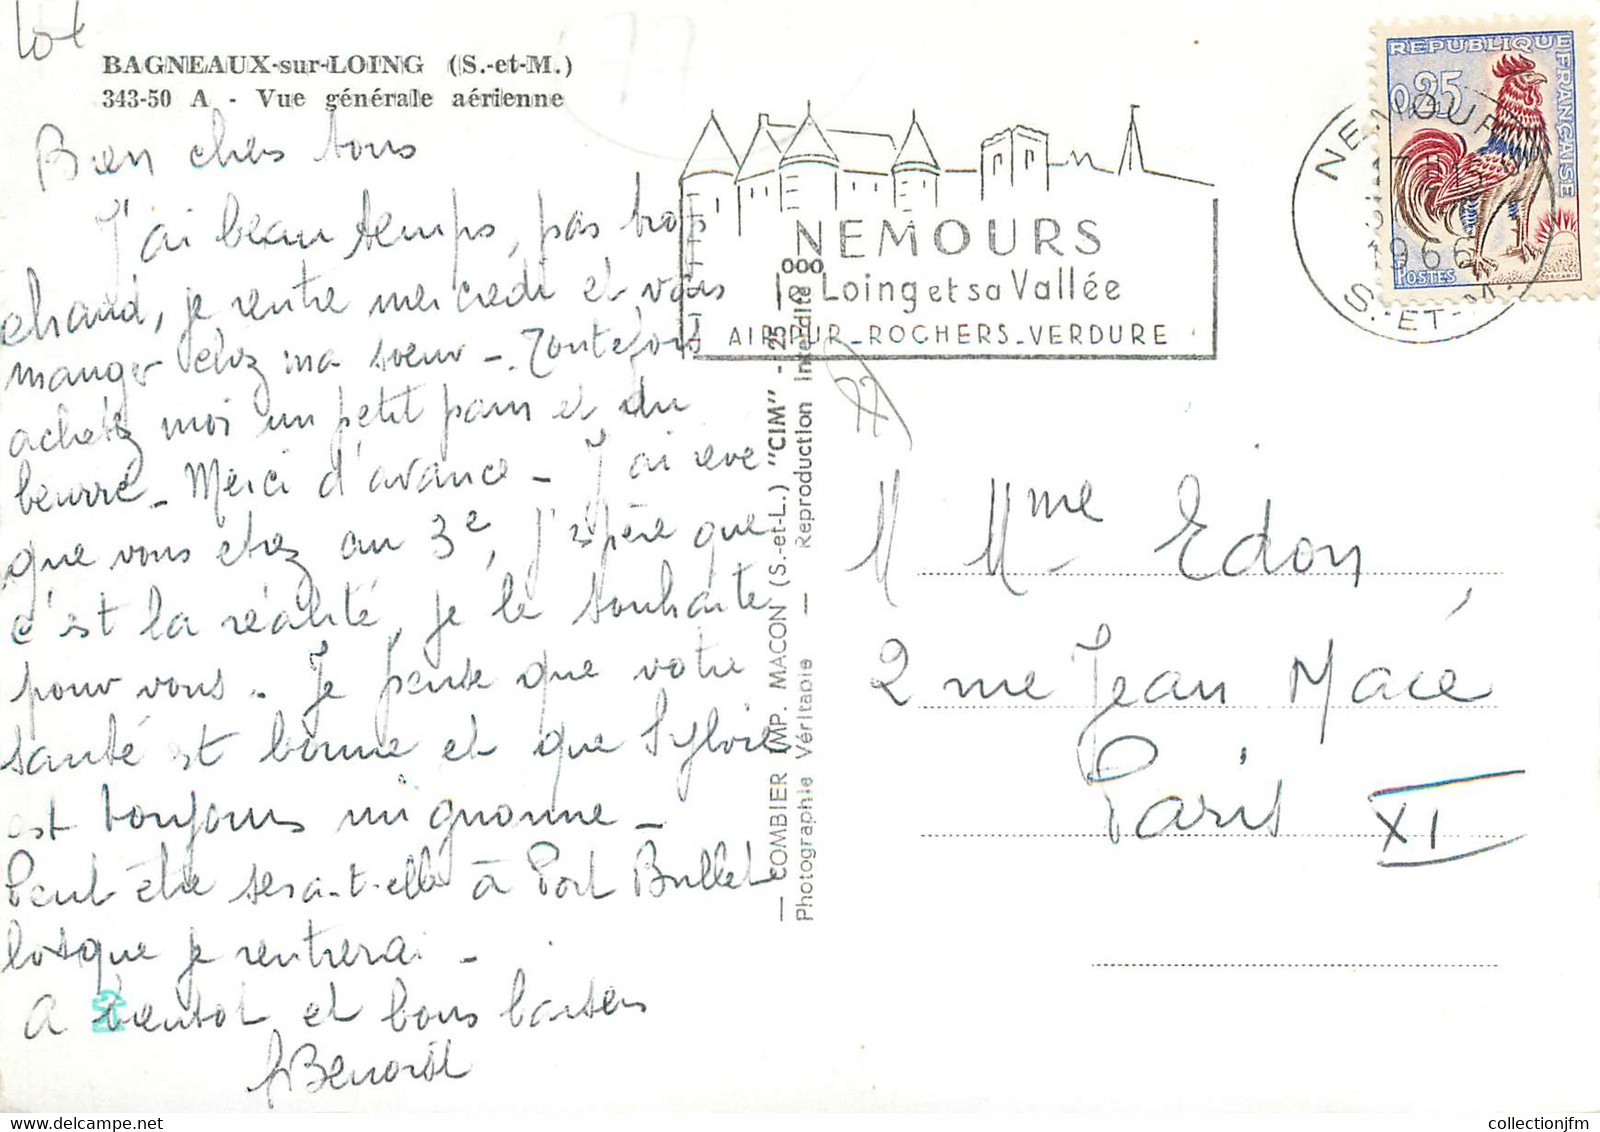 lot
77
BAGNEAUX-sur-LOING (S.-et-M.)
343-50 A - Vue générale aérienne
Bien chers tous
J'ai beau temps, pas trop
chaud, je rentre mercredi et vais
manger chez ma soeur - Toutefois
achetez moi un petit pain et du
beurre - Merci d'avance - J'ai rêvé
que vous étiez au 3e, j'espère que
c'est la réalité, je le souhaite
pour vous. Je pense que votre
santé est bonne et que Sylvie
est toujours mignonne -
Peut être sera-t-elle à Port Brillet
lorsque je rentrerai -
A bientot et bons baisers
Benoît
NEMOURS
Loing et sa Vallée
AIR PUR_ROCHERS_VERDURE
— COMBIER IMP. MACON (S.-et-L.) "CIM" - 25
Photographie Véritable — Reproduction interdite
77
REPUBLIQUE
FRANÇAISE
0,25
POSTES
NEMOURS
1966
S.-ET-M.
M Mme Edon
2 rue Jean Macé
Paris XI
collectionjfm